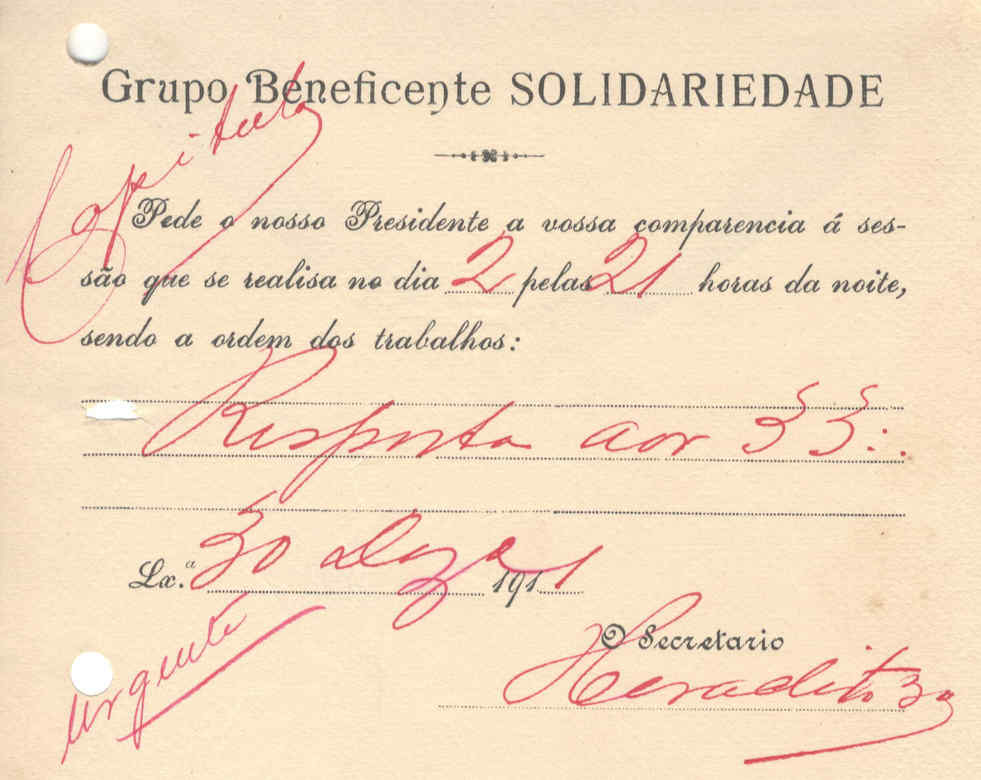 Grupo Beneficente SOLIDARIEDADE
Capitulo
Pede o nosso Presidente a vossa comparencia á ses-
são que se realisa no dia 2 pelas 21 horas da noite,
sendo a ordem dos trabalhos:
Resposta aor 33∴
Lx.ª 30 Dezo 1911
O Secretario
Heraclito 3º
urgente